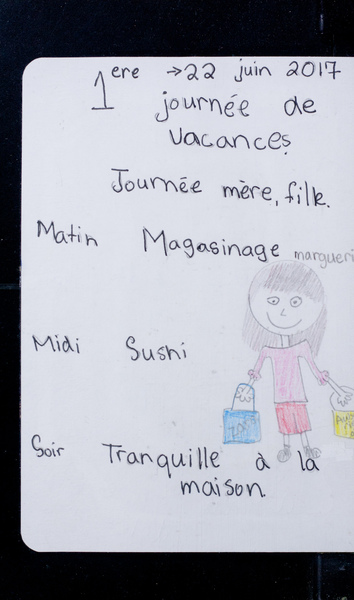 1ere → 22 juin 2017
journée de
vacances
Journée mère, fille.
Matin Magasinage
margueri
Midi Sushi
Soir Tranquille à la
maison.